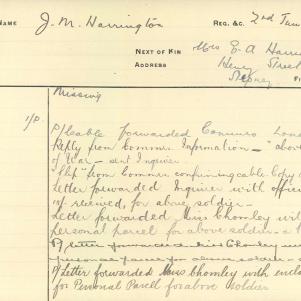 Name J. M. Harrington Reg. &c. 2nd Tun
Next of Kin Mrs E. A. Harri
Address Henry Street
Stepney
Missing
1/P.
Cable forwarded Lon
Reply from Commr Information - "abov
of War - sent Inquirer.
"Slip" from Commr confirming cable. Copy
Letter forwarded Inquirer with offic
received, for above soldier.
Letter forwarded Miss Chomley wit
personal parcel for above soldier - a
Letter forwarded Miss Chomley
for above soldier
Letter forwarded Miss Chomley with encl
for Personal Parcel for above soldier